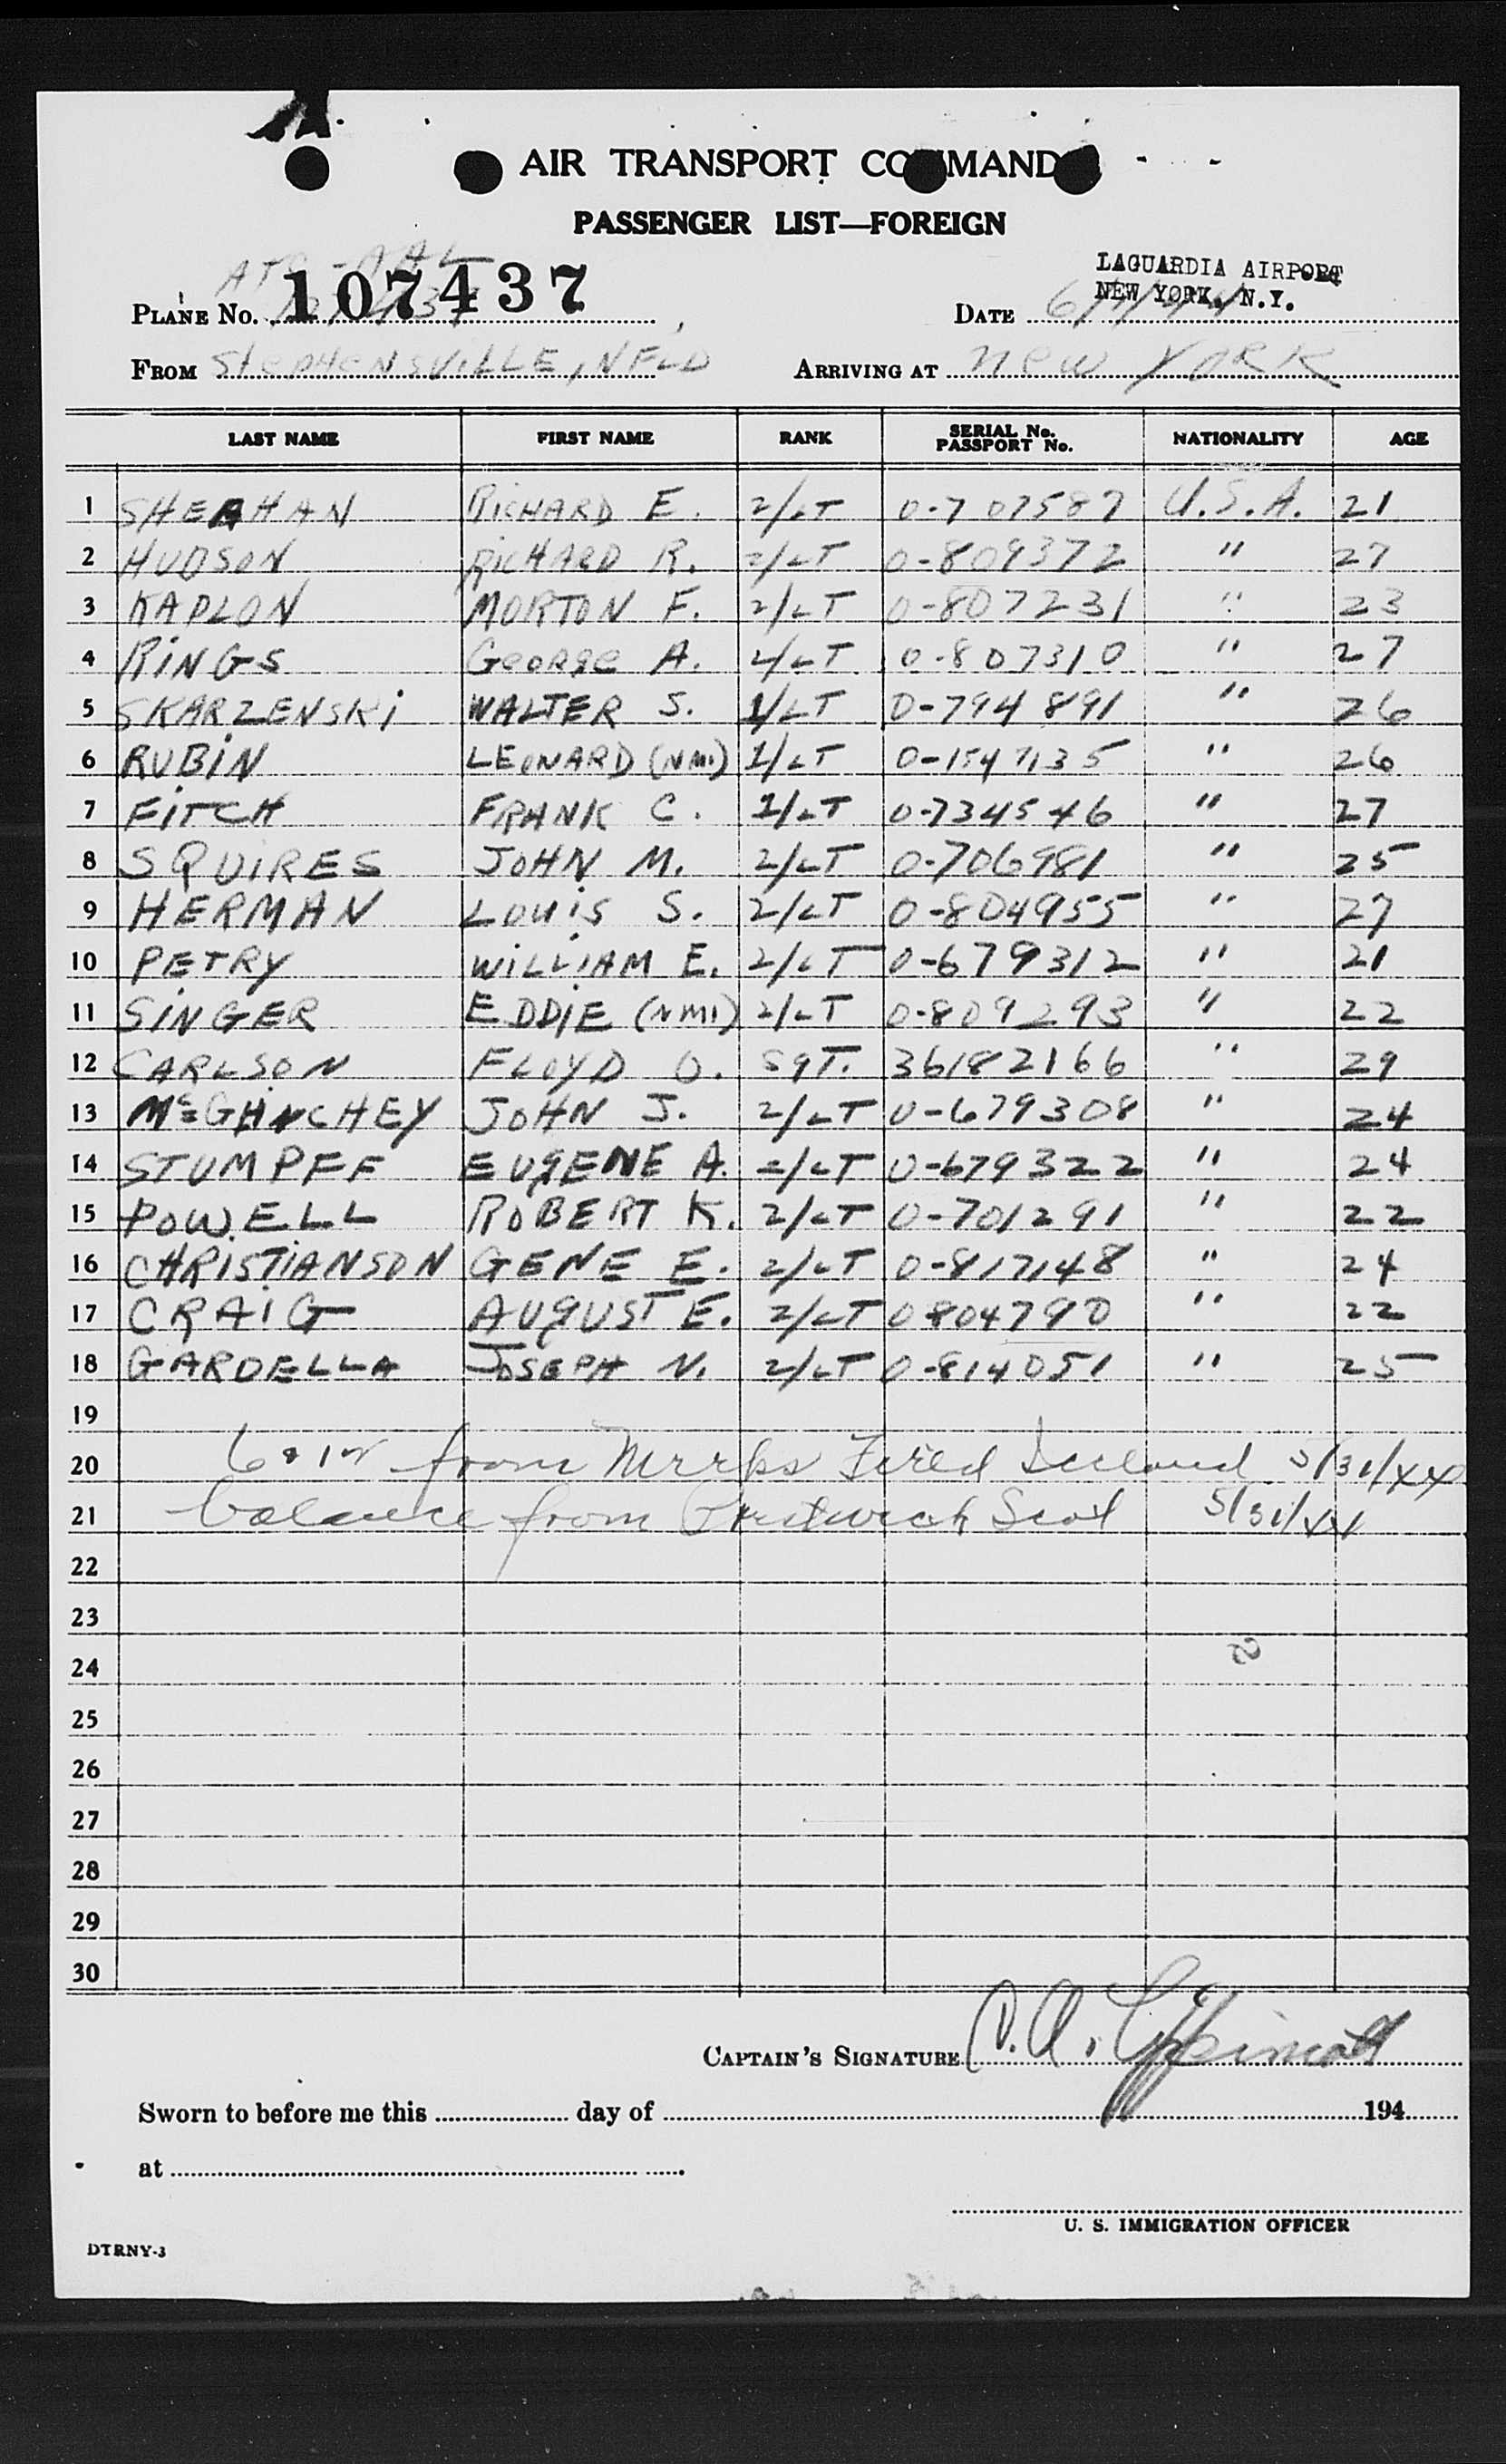 AIR TRANSPORT COMMAND
PASSENGER LIST—FOREIGN
ATC - AAL
LAGUARDIA AIRPORT
NEW YORK, N.Y.
PLANE No. 107437
DATE
FROM STEPHENSVILLE, NFLD ARRIVING AT NEW YORK
LAST NAME FIRST NAME RANK SERIAL No. PASSPORT No. NATIONALITY AGE
1 SHEAHAN RICHARD E. 2/LT 0-707587 U.S.A. 21
2 HUDSON RICHARD R. 2/LT 0-809372 " 27
3 KAPLON MORTON F. 2/LT 0-807231 " 23
4 RINGS GEORGE A. 2/LT 0-807310 " 27
5 SKARZENSKI WALTER S. 1/LT 0-794891 " 26
6 RUBIN LEONARD (NMI) 1/LT 0-1547135 " 26
7 FITCH FRANK C. 1/LT 0-734546 " 27
8 SQUIRES JOHN M. 2/LT 0-706981 " 25
9 HERMAN LOUIS S. 2/LT 0-804955 " 27
10 PETRY WILLIAM E. 2/LT 0-679312 " 21
11 SINGER EDDIE (NMI) 2/LT 0-809293 " 22
12 CARLSON FLOYD O. SGT. 36182166 " 29
13 McGLINCHEY JOHN J. 2/LT 0-679308 " 24
14 STUMPFF EUGENE A. 2/LT 0-679322 " 24
15 POWELL ROBERT K. 2/LT 0-701291 " 22
16 CHRISTIANSON GENE E. 2/LT 0-817148 " 24
17 CRAIG AUGUST E. 2/LT 0804790 " 22
18 GARDELLA JOSEPH N. 2/LT 0-814051 " 25
19
20 6 & 12 from Meeks Field Iceland 5/31/44
21 balance from Prestwick Scot 5/31/44
22
23
24
25
26
27
28
29
30
CAPTAIN'S SIGNATURE
Sworn to before me this day of 194
at
U. S. IMMIGRATION OFFICER
DTRNY-3